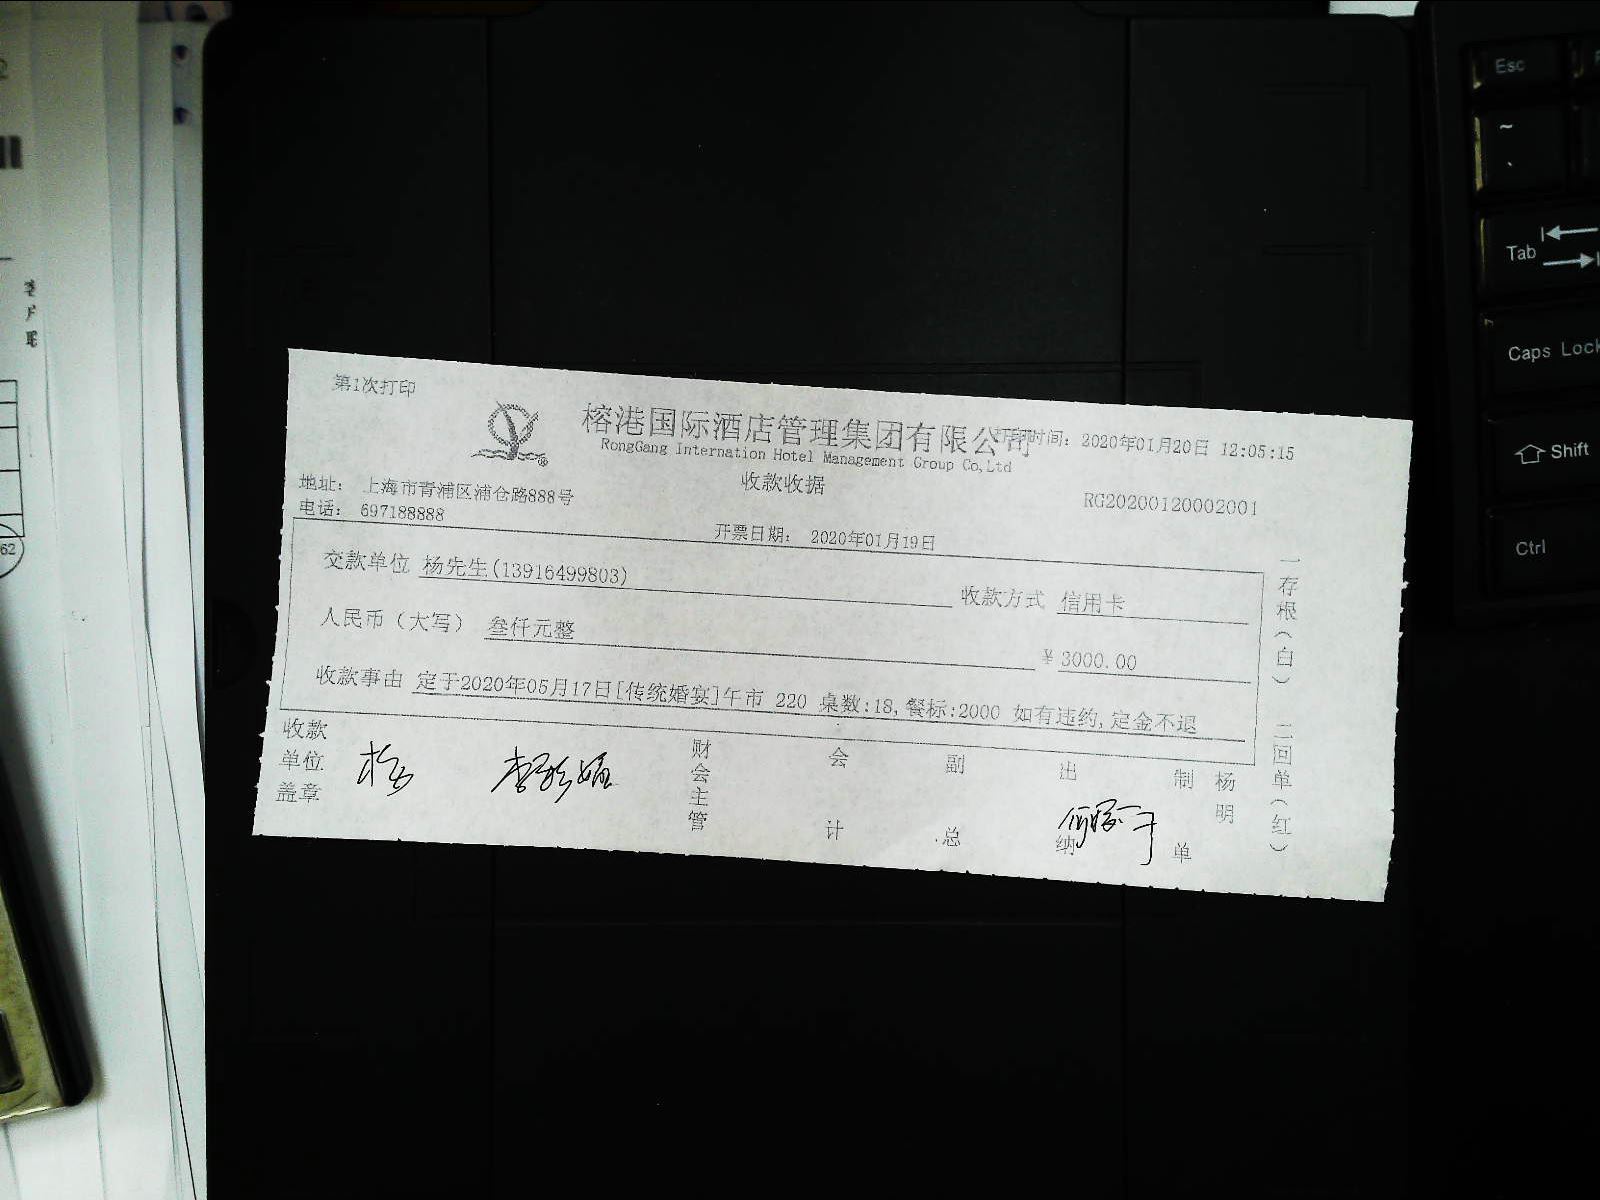 第1次打印
榕港国际酒店管理集团有限公司
打印时间: 2020年01月20日 12:05:15
RongGang Internation Hotel Management Group Co,Ltd
收款收据
地址: 上海市青浦区浦仓路888号
RG20200120002001
电话: 697188888
开票日期: 2020年01月19日
交款单位 杨先生(13916499803)
收款方式 信用卡
人民币（大写） 叁仟元整
¥ 3000.00
收款事由 定于2020年05月17日[传统婚宴]午市 220 桌数:18,餐标:2000 如有违约,定金不退
收款单位盖章
财会主管
会计
副总
出纳
制单
杨明
一存根（白） 二回单（红）
Esc
~
Tab
Caps Lock
Shift
Ctrl
客户联
62